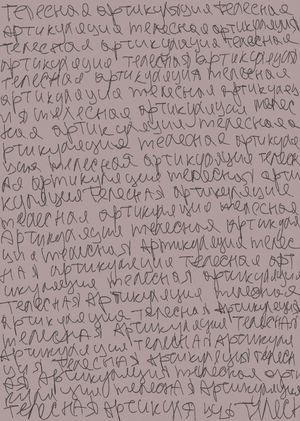 телесная артикуляция телесная
артикуляция телесная артикуляция
телесная артикуляция телесная
артикуляция телесная артикуляция
телесная артикуляция телесная
артикуляция телесная артикуляц
ия телесная артикуляция телес
ная артикуляция телесная а
ртикуляция телесная артикуля
ция телесная артикуляция телесн
ая артикуляция телесная арти
куляция телесная артикуляция
телесная артикуляция телесная
Артикуляция телесная артикуля
ция телесная артикуляция телес
ная артикуляция телесная арт
икуляция телесная артикуляция
телесная Артикуляция телесная
артикуляция телесная артикуляция
телесная артикуляция телесная
Артикуляция телесная Артикуля
ция телесная артикуляция телесн
ая Артикуляция телесная арт
икуляция телесная Артикуляция
телесная артикуляция телес